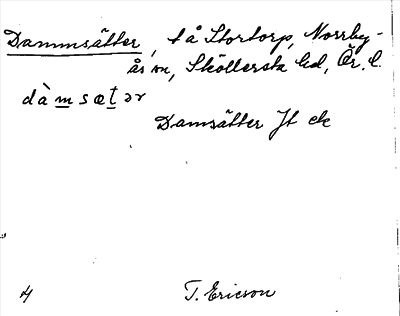 Dammsätter, tå Stortorp, Norrby-
ås sn, Sköllersta hd, Ör. l.
dàmsætər
Damsätter Jt ek
4
T. Ericson